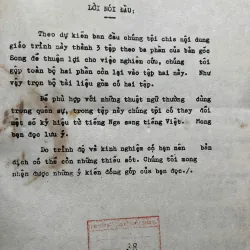 LỜI NÓI ĐẦU:
Theo dự kiến ban đầu chúng tôi chia nội dung
giáo trình này thành 3 tệp theo ba phần của bản gốc
Song để thuận lợi cho việc nghiên cứu, chúng tôi
gộp toàn bộ hai phần sồn lại vào tệp hai này. Như
vậy trọn bộ tài liệu gồm có hai tệp.
Để phù hợp với những thuật ngữ thường dùng
trong quân sự, trong tệp này chúng tôi có thay đổi
một số ký hiệu từ tiếng Nga sang tiếng Việt. Mong
bạn đọc lưu ý.
Do trình độ và kinh nghiệm có hạn nên bản
dịch có thể còn những thiếu sót. Chúng tôi mong
nhận được những ý kiến đóng góp của bạn đọc./.